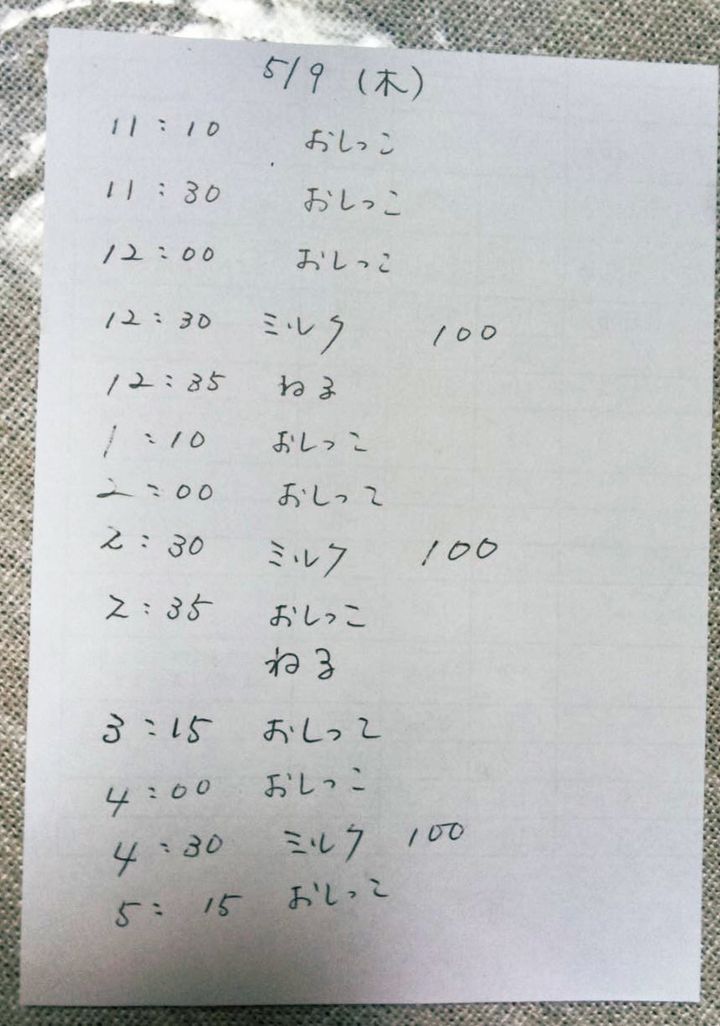 5/9 (木)
11:10 おしっこ
11:30 おしっこ
12:00 おしっこ
12:30 ミルク 100
12:35 ねる
1:10 おしっこ
2:00 おしっこ
2:30 ミルク 100
2:35 おしっこ
ねる
3:15 おしっこ
4:00 おしっこ
4:30 ミルク 100
5:15 おしっこ